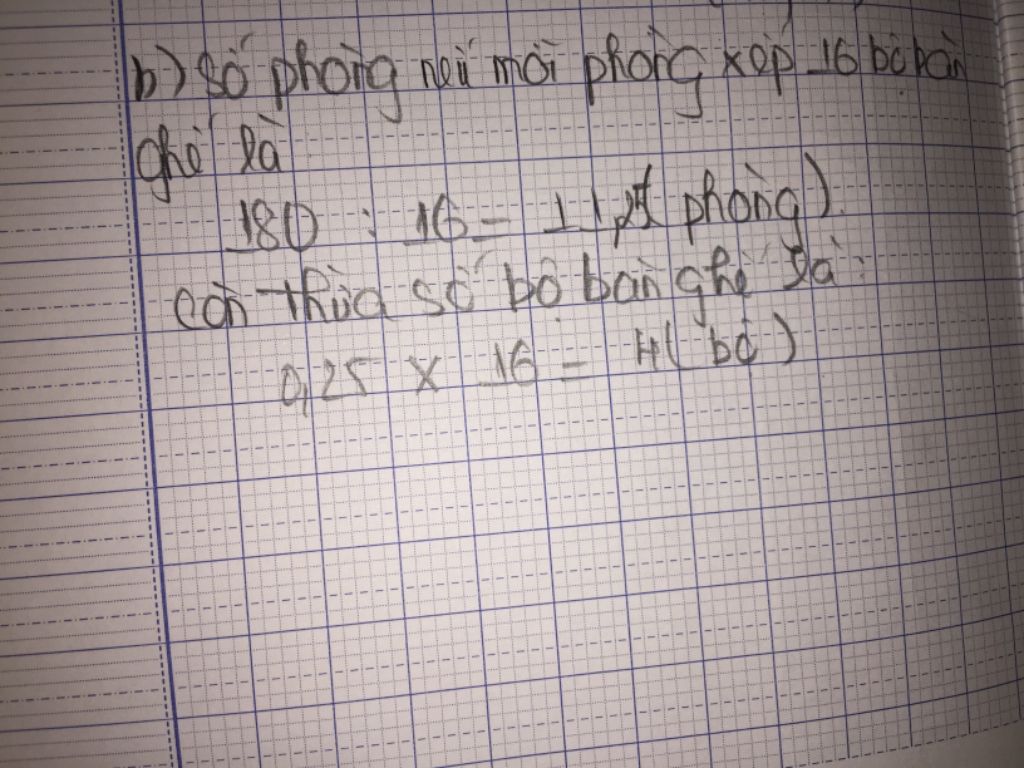 b) Số phòng nếu mỗi phòng xếp 16 bộ bàn
ghế là
180 : 16 = 11, phòng)
còn thừa số bộ bàn ghế là:
0,25 x 16 = 4 ( bộ )